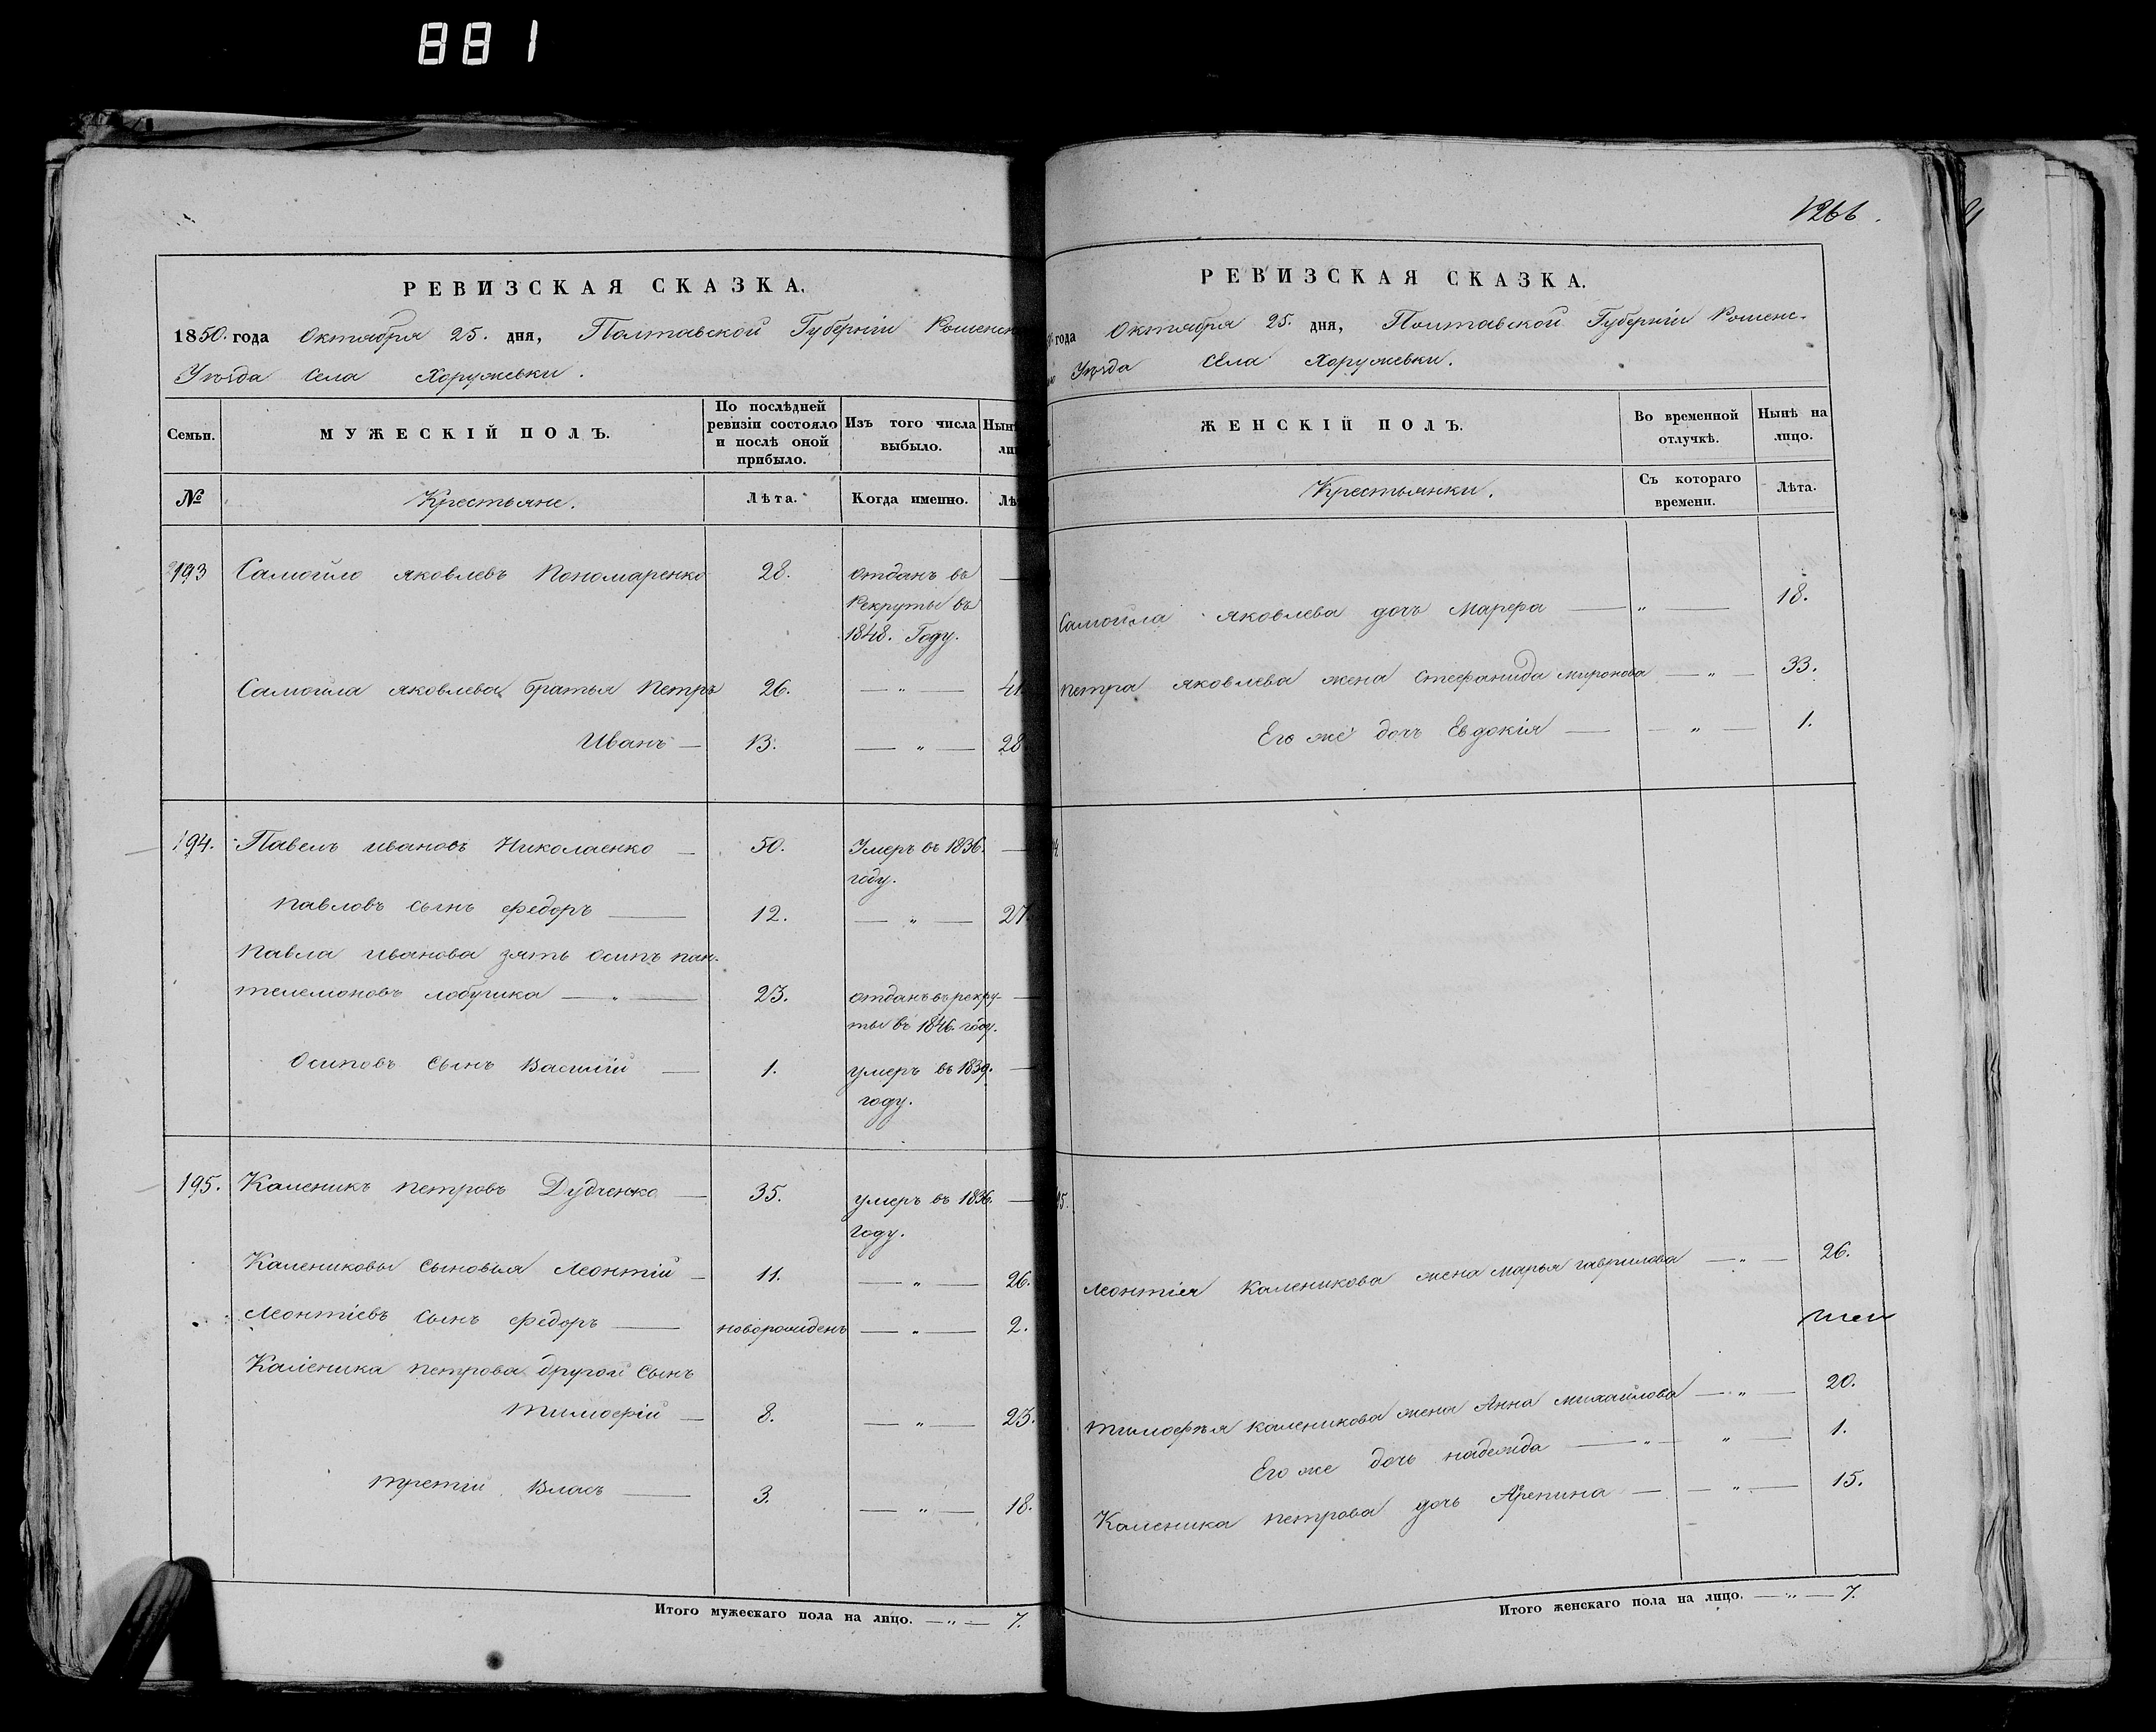 881
РЕВИЗСКАЯ СКАЗКА.
1850. года Октября 25. дня, Полтавской Губерніи Роменск
Уѣзда Села Хоружевки.
Семьи.
МУЖЕСКІЙ ПОЛЪ.
По послѣдней ревизіи состояло и послѣ оной прибыло.
Изъ того числа выбыло.
Нынѣ
ли
№
Крестьяне.
Лѣта.
Когда именно.
Лѣ
193 Самойло яковлевъ Пономаренко 28. отданъ въ
Рекруты въ
1848. Году.
Самойла яковлева братья Петръ 26. — „ — 41.
Иванъ — 13. — „ — 28
194. Павелъ ивановъ Николаенко — 50. Умеръ въ 1836. —
году.
павловъ сынъ федоръ — 12. — „ — 27.
павла иванова зять осипъ пан-
телемоновъ лобушка — „ — 23. отданъ въ рекру- —
ты въ 1846. году.
осиповъ сынъ Василій — 1. умеръ въ 1839. —
году.
195. Каленикъ петровъ Дудченко — 35. умеръ въ 1836. —
году.
Калениковы сыновья Леонтій — 11. — „ — 26.
Леонтіевъ сынъ федоръ — новорожденъ — „ — 2.
Каленика петрова другой сынъ
тимофій — 8. — „ — 23.
третій Власъ — 3. — „ — 18.
Итого мужескаго пола на лицо. — „ — 7.
1266.
РЕВИЗСКАЯ СКАЗКА.
года Октября 25. дня, Полтавской Губерніи Роменс-
Уѣзда Села Хоружевки.
ЖЕНСКІЙ ПОЛЪ.
Во временной отлучкѣ.
Нынѣ на лицо.
Крестьянки.
Съ котораго времени.
Лѣта.
Самойла яковлева дочь Марфа — „ — 18.
петра яковлева жена стефанида миронова — „ — 33.
Его же дочь Евдокія — — „ — 1.
Леонтія Каленикова жена марья гаврилова — „ — 26.
тимофѣя каленикова жена Анна михаилова — „ — 20.
Его же дочь надежда — „ — „ — 1.
Каленика петрова дочь Арепина — — „ — 15.
Итого женскаго пола на лицо. — „ — 7.